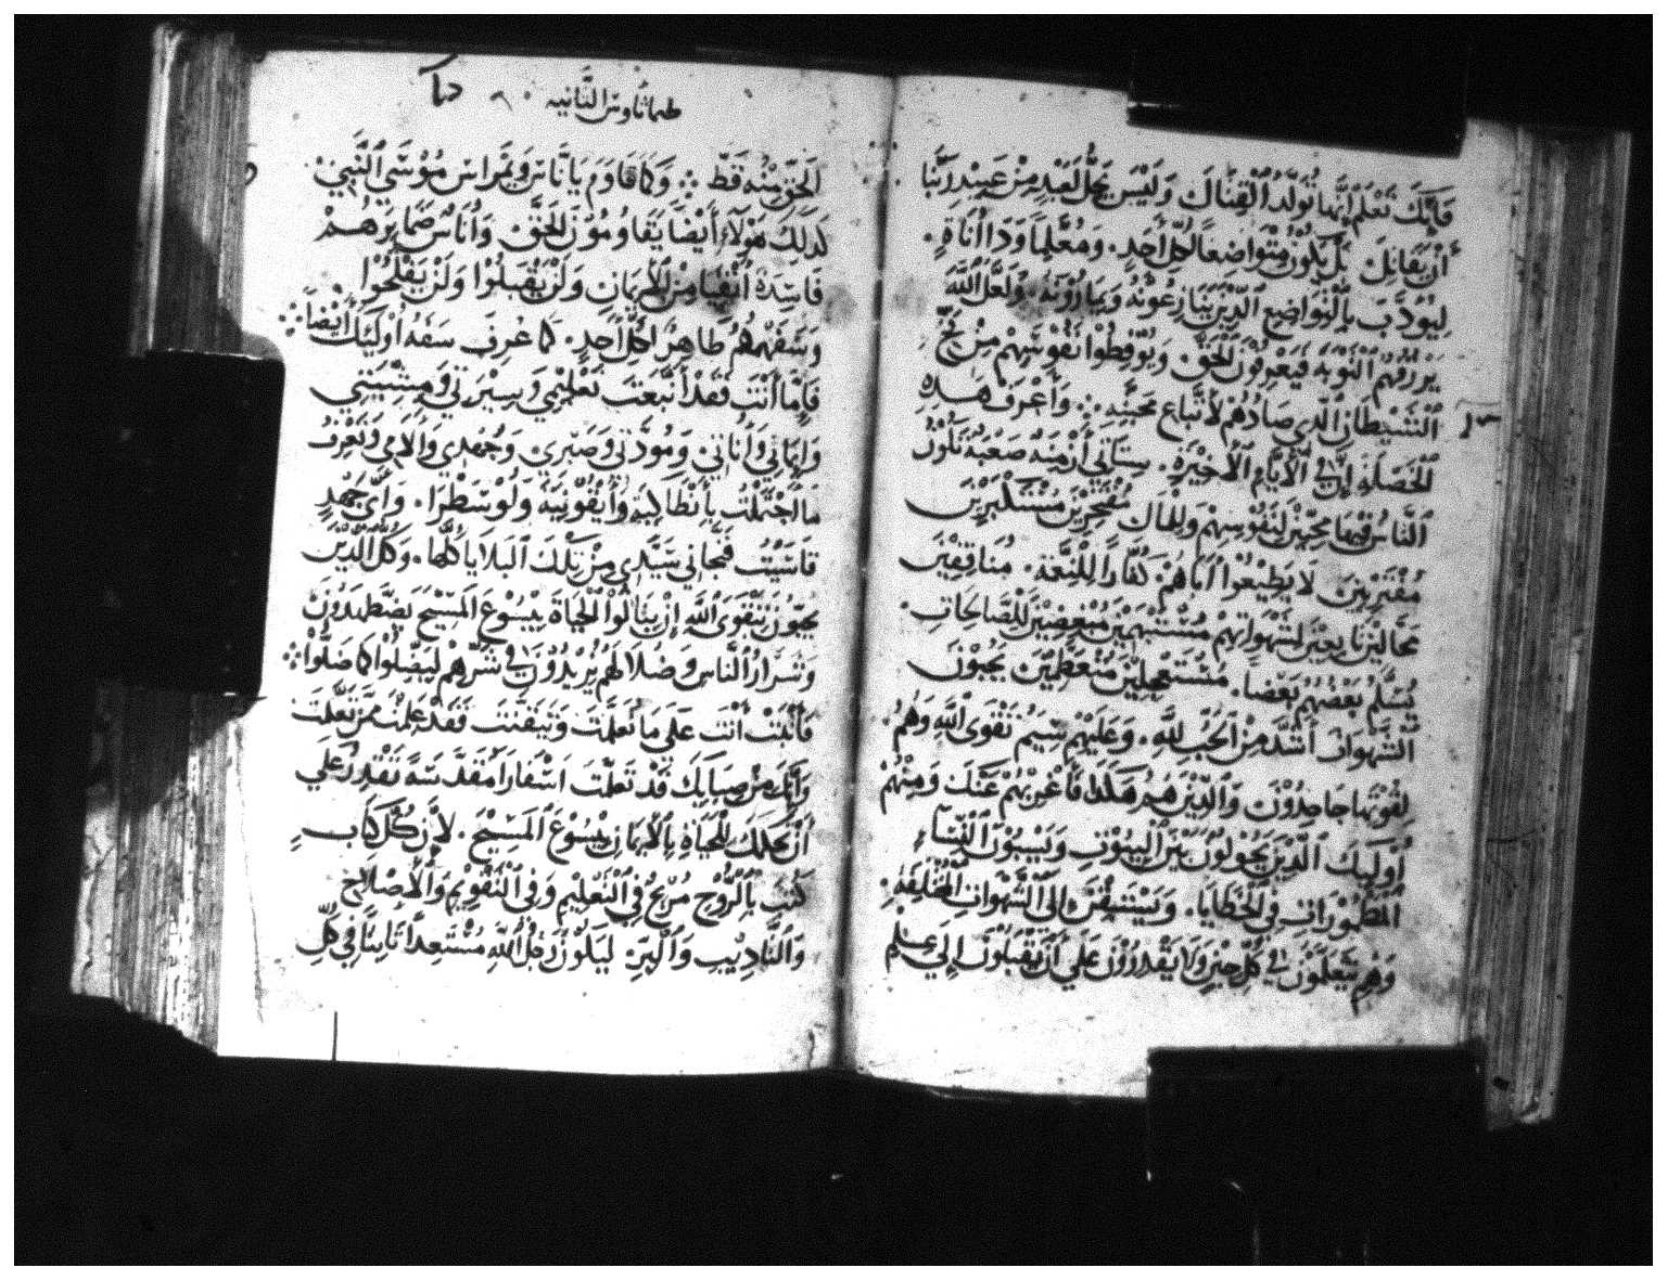 فَاِنَّكَ تَعْلَم اِنَّهَا تُوَلَّدُ الْقِتَاكَ وَلَيْسَ يَحِلُّ لعَبْدٍ مِنْ عَبِيْدِ رَبِّنَا
أَنْ يقَاتِلَ بَلْ يَكُوْنُ مُتَوَاضِعًا لكُلِّ أَحَدٍ. وَمُعَلِّمًا وَدَا أَنَاةٍ.
لِيُودِّبَ بِالْتَوَاضِعِ الَّذِيْنَ يُنَازِعُونُهُ وَيمَارُوْنَهُ. وَلَعَلَّ اللَّهَ
يَرْزُقُهُمْ الْتَوْبَهَ فَيَعْرِفُوْنَ الْحَقَّ. وَيُوْقِظُوْا نُفُوْسَهُمْ مِنْ فَخِّ
الْشَيْطَانِ الَّدِي صَادَهُمْ لاَتّبَاعِ مَحبَّتِهِ ۞ وَأَعْرِفْ هَدِهِ
الْخَصْلَهَ إِنَّ فِي الْأَيَّامِ الْأَخِيْرَةِ. سَتَاتِي أَزْمِنَهُ صَعْبَهُ تَكُوْنُ
النَّاسُ فِيْهَا مُحِبّيْنَ لِنُفُوْسِهِمْ وَلِلْمَالِ مُفْتَخِرِيْنَ مُسْتَكْبِرِيْنَ
مُفْتَرِيِيْنَ لَا يَطِيْعُوْا أَبَاهُمْ كُفَّارًا لِلْنِعْمَة. مُنَافِقِيْنَ
مَحَّالِيْنَ تَابِعِيْنَ لشَهْوَاتِهِمْ مُتَشَبِّهِيْنَ مُبْغِضِيْنَ لِلْصَّالِحَاتِ.
يُسَلِّمُ بَعْضُهُمْ بَعْضا. مُسْتَعْجِلِيْنَ مُتْعَظِّمِيْنَ يُحِبُوْنَ
الْشَهوَاتَ أَشَدَّ مِنْ الْحُبِّ لِلَّهِ. وَعَلَيْهِمْ سِيْمُ تَقْوَى اللَّهِ وَهُمْ
لِقُوَّتِهَا جَاحِدُوْنَ وَالَّدِيْنَ هُمْ هَكَدَا فَأَغْرِبْهُمْ عَنَّكَ وَمِنْهُمْ
أُوْلَيِكَ الَّدِيْنَ يَجُوْلُوْنَ بَيْنَ الْبِيُوْتِ وَيَسْبُوْنَ الْنِسَآءَ
الْمَطْمُوْرَاتِ فِي الْخَطَايَا. وَيَسْتَبِقْنَ إِلَى الْشَّهْوَاتِ الْمُخْتَلِفَهِ.
وَهُمْ يَتَعَلَّمُوْنَ فِي كُلِّ حِيْنٍ وَلَا يَقْدِرُوْنَ عَلَى أَنْ يُقْبَلُوْنَ إِلَى عِلْمِ
طيماثاوس الثَّانيه
الْحَقِّ مِنْهُ قَطّ ۞ وَكَمَا قَاوَمَ يَانَّاسْ وَيَمْرَاسْ مُوْسَي الْنَّبِيّ
كَدَلِكَ هَوْلَاءِ أَيْضًا يُقَاوِمُوْنَ الْحَقَّ. وَأُنَاسٌ ضَمَايِرَهُمْ
فَاسِدَةُ أَنْقِيَا مِنَ الْأَيْمَانِ وَلَنْ يَقْبَلُوْا وَلَنْ يَفْلَحُوْا
وَسَفَهَهُمُ ظَاهِرُ لكُلِّ أَحَدٍ. كَمَا عُرِفَ سَفَهُ أُوْلَيِكَ أَيْضًا ۞
فَأَمَّا أَنْتَ فَقَدْ أَتَّبَعْتَ تَعْلِيْمِي وَسِيْرَتِي وَمِشِيَّتِي
وَإِيْمَانِي وَأَنَاتِي وَمَوَدَّتِي وَصَبْرِي وَجُهْدِي وَالَامِي وَتَعْرِفُ
مَا احْتَمَلْتُ بِأَنْطَاكِيَهِ وَأَيْقُوْنِيَهَ وَلُوْسْطَرَا. وَأَيَّ جَهْدٍ
قَاسَيْتُ فَنَجَّانِي سَيِّدِي مِنْ تِلْكَ الْبَلَايَا كُلِّهَا. وَكُلُّ الَّدِيْنَ
يُحِبّوْنَ بِتَقْوَى اللَّهِ إِنْ يَنَالُوْا الْحَيَاةَ بِيْسُوْعَ الْمَسِيْحِ يُضْطَهَدُوْنَ
وَشَرَارُ الْنَّاسِ وَضُلاَلهُمْ يَزِيْدُوْنَ فِي شَرِّهِمْ لِيَضِلُّوْا كَمَا ضَلُّوْا ۞
فَأَثْبَتْ أَنْتَ عَلَى مَا تَعَلَّمْتَ وَتَيَقَّنْتَ فَقَدْ عَلِمْتَ مِمَّنْ تَعَلَّمْتَ
وَأَنَّكَ مِنْ صِبَايِكَ قَدْ تَعَلَّمْتَ اَسْفَارًا مُقَدَّسَهً تَقْدِرُ عَلَى
أَنْ تُحَكِّمَكَ لِلْحَيَاةِ بِالْأَيْمَانِ بِيْسُوْعَ الْمَسِيْحَ. لأِنَّ كُلَّ كِتَابٍ
كُتِبَ بِالْرُّوْحِ مُرْبِحُ فِي الْتَعْلِيْمِ وَفِي الْتَقْوِيْمِ وَالْأَصْلَاحِ
وَالْتَّادِيْبِ وَالْبِرِّ لِيَكُوْنَ رَجُلُ اللَّهِ مُسْتَعِدًّا ثَابِتًا فِي كُلِّ